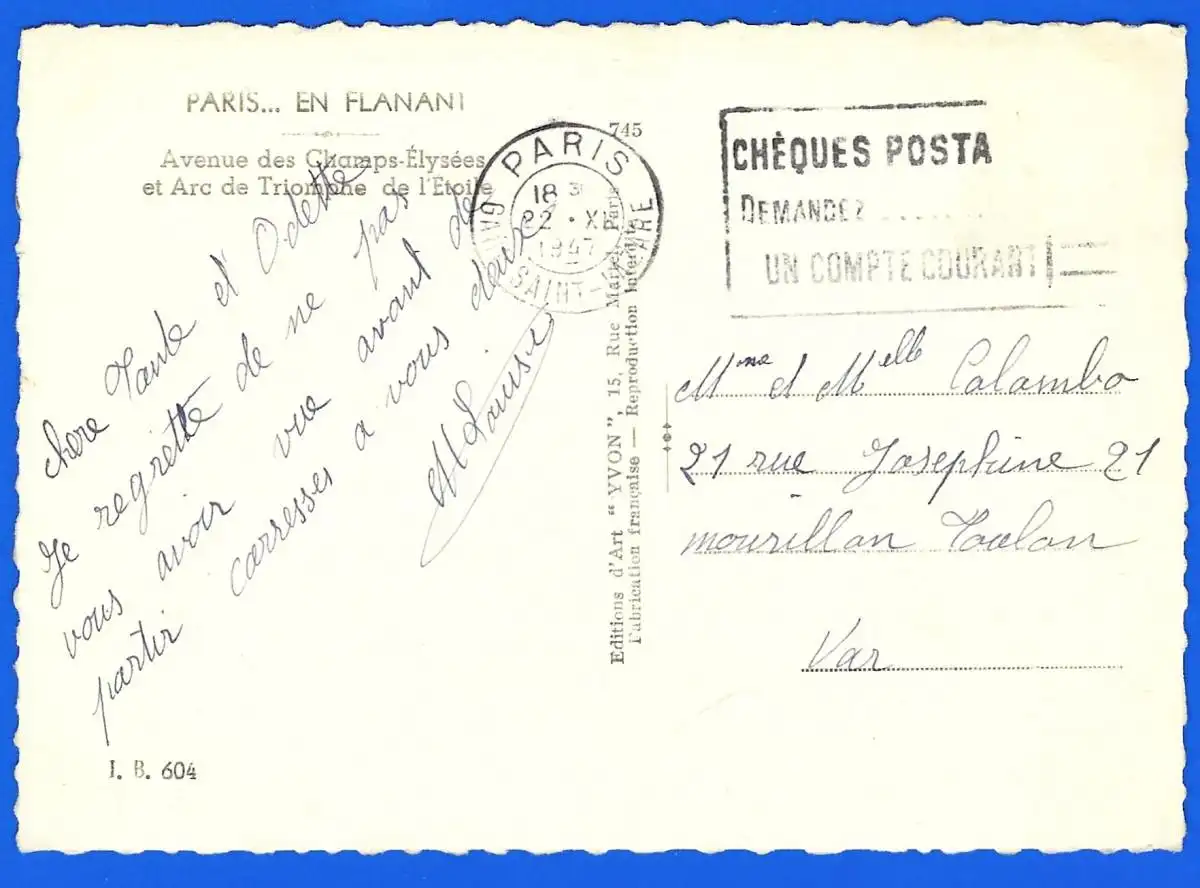 PARIS... EN FLANANT
Avenue des Champs-Élysées
et Arc de Triomphe de l'Étoile
chere Tante et Odette
Je regrette de ne pas
vous avoir vue avant de
partir carresses a vous deux
M Louise
I. B. 604
745
PARIS
18
22 · XI
1947
GARE SAINT-LAZARE
Editions d'Art "YVON", 15, Rue Martel, Paris
Fabrication française — Reproduction Interdite
CHÈQUES POSTA
DEMANDEZ
UN COMPTE COURANT
Mme et Melle Colombo
21 rue Josephine 21
mourillon Toulon
Var